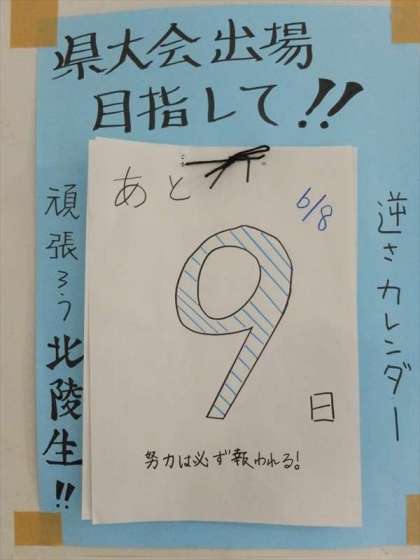 県大会出場
目指して!!
逆さカレンダー
あと
6/8
9
日
努力は必ず報われる!
頑張ろう北陵生!!